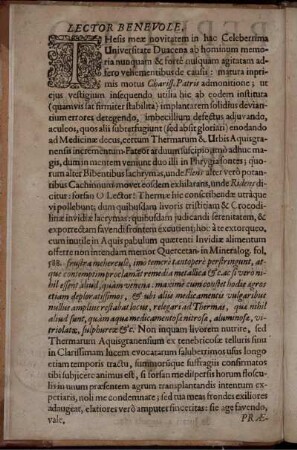 LECTOR BENEVOLE,
THesis meæ novitatem in hac Celeberrima
Universitate Duacena ab hominum memo-
ria nunquam & fortè nusquam agitatam adfero
vehementibus de causis: matura inpri-
mis motus Chariss. Patris admonitione; ut
ejus vestigium insequendo utilia hic ab eodem institura
(quamvis sat firmiter stabilita) implantarem solidius devian-
tium errores detegendo, imbecillium defectus adjuvando,
aculeos, quos alii subterfugiunt (sed absit gloriari) enodando
ad Medicinæ decus, certum Thermarum & Urbis Aquisgra-
nensis incrementum. Fateor arduum suscipio, imò adhuc ma-
gis, dum in mentem veniunt duo illi in Phrygia fontes; quo-
rum alter Bibentibus lachrymas, unde Flens alter verò potan-
tibus Cachinnum movet eosdem exhilarans, unde Ridens di-
citur: forsan O Lector: Thermæ hîc conscribendæ utraque
vi pollebunt, dum quibusdam livoris tristitiam & Crocodi-
linas invidiæ lacrymas: quibusdam judicandi serenitatem, &
exporrectam favendi frontem excutient; hoc à te extorqueo,
cum inutile in Aquis pabulum quærenti Invidiæ alimentum
offerre non intendam memor Quercetan-in Mineralog. fol.
198. sincera nucherculi, imò temerè tantoperè perstringunt, at-
que contemptim proclamat remedia metallica &c. ac si vero ni-
hil essent aliud, quàm venena: maximè cum constet hodie agros
etiam deploratissimos, & ubi aliis medicamentis vulgaribus
nullus amplius restabat locus, relegari ad Thermas, quæ nihil
aliud sunt, quàm aqua medicamentosæ nitrosa, aluminosa, vi-
triolata, sulphureæ &c. Non inquam livorem nutrire, sed
Thermarum Aquisgranensium ex tenebricosæ telluris sinu
in Clarissimam lucem evocatarum saluberrimos usus longo
etiam temporis tractu, summorumque suffragiis confirmatos
tibi subjicere animus est, si forsan me dispersis hortum floscu-
lis in unum præsentem agrum transplantandis intentum ex-
periaris, noli me condemnare; sed tua meas frondes exiliores
adaugeat, elatiores verò amputet sinceritas: sic age favendo,
vale, PRÆ-